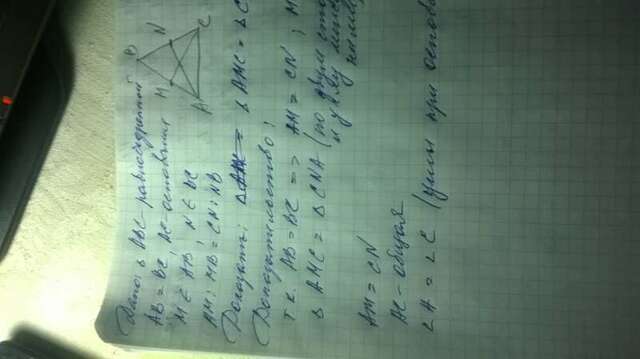 Дано: Δ ABC - равнобедренный
AB = BC, AC - основание
M ∈ AB, N ∈ BC
AM : MB = CN : NB
B
N
C
M
A
Доказать: Δ AMC = Δ C
Доказательство:
т.к. AB = BC => AM = CN; M
Δ AMC = Δ CNA (по двум сто
и углу между
ними
AM = CN
AC - общая
∠A = ∠C (углы при основа